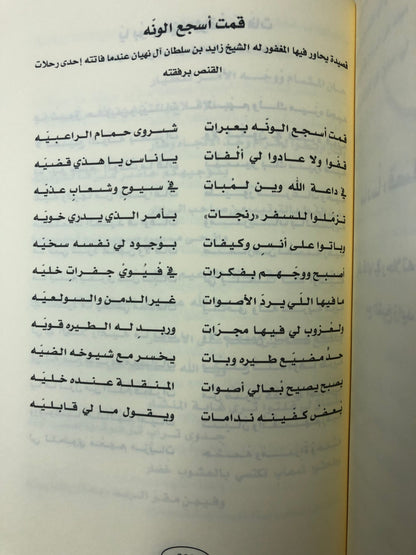 قمت أسجع الونّه
قصيدة يحاور فيها المغفور له الشيخ زايد بن سلطان آل نهيان عندما فاتته إحدى رحلات
القنص برفقته
قمت أسجع الونّه بعبرات شروى حمام الراعبيّه
قفوا ولا عادوا لي ألفات يا ناس يا هذي قضيّه
في داعة الله وين لمبات في سيوح وشعاب عذيّه
تزملوا للسفر «رنجات» بأمر الذي يدري خويّه
وباتوا على أنس وكيفات بوجود لي نفسه سخيّه
أصبح ووجهم بفكرات في فيوي جفرات خليّه
ما فيها اللّي يردّ الأصوات غير الدمن والسولعيّه
ولغروب لي فيها مجرّات وربد له الطيره قويّه
حد مضيّع طيره وبات يخسر مع شيوخه الضيّه
يصبح يصيح بعالي أصوات المنقلة عنده خليّه
بعض كفينه ندامات ويقول ما لي قابليّه